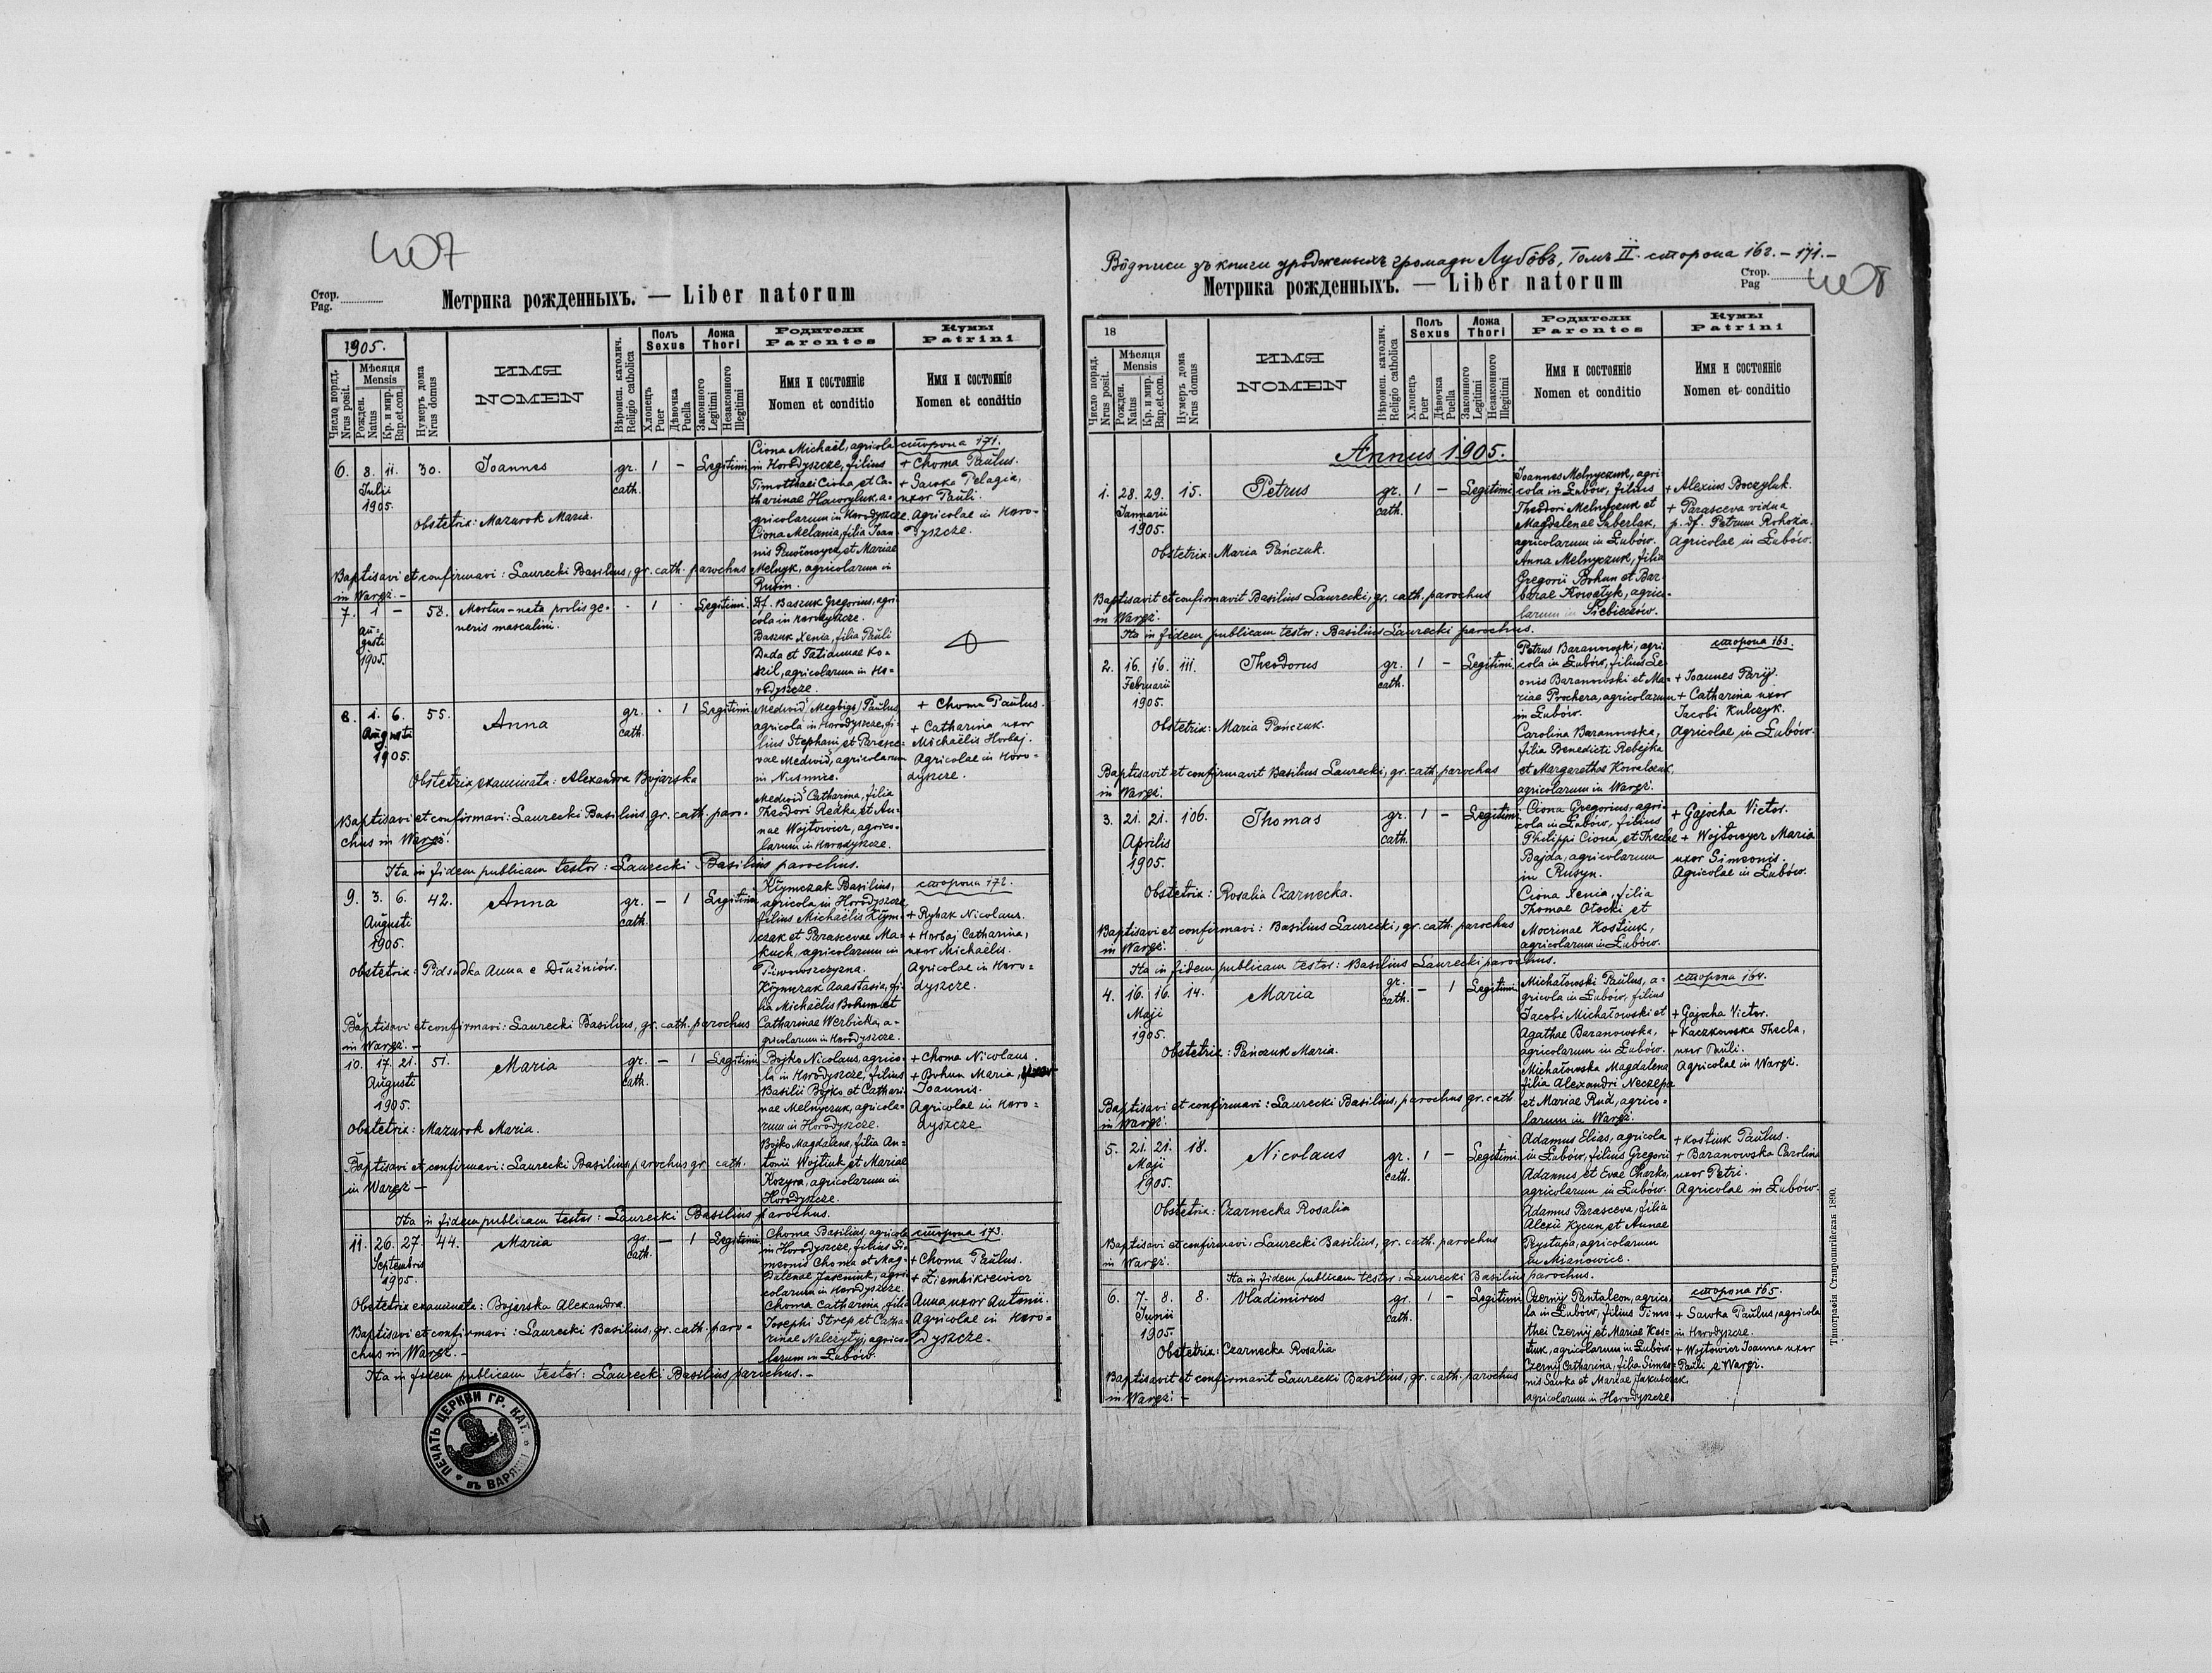 407
Стор.
Pag.
Метрика рожденныхъ. — Liber natorum
1905.
Число поряд.
Nrus posit.
Мѣсяця
Mensis
Рожден.
Natus
Кр. и мир.
Bap.et.con.
Нумеръ дома
Nrus domus
ИМЯ
NOMEN
Вѣроисп. католич.
Religio catholica
Полъ
Sexus
Хлопецъ
Puer
Дѣвочка
Puella
Ложа
Thori
Законного
Legitimi
Незаконного
Illegitimi
Родители
Parentes
Имя и состояніе
Nomen et conditio
Кумы
Patrini
Имя и состояніе
Nomen et conditio
6. 8. 11. 30. Joannes gr. 1 – Legitimi
Julii cath.
1905.
Obstetrix: Mazurok Maria.
Ciona Michaël, agricola
in Horodyszcze, filius
Timotthaei Ciona et Ca-
tharinae Hawryluk, a-
gricolarum in Horodyszcze.
Ciona Melania, filia Joan-
nis et Mariae
Melnyk, agricolarum in
Rusin.
сторона 171.
+ Choma Paulus.
+ Sawka Pelagia,
uxor Pauli.
Agricolae in Horo-
dyszcze.
Baptisavi et confirmavi: Laurecki Basilius, gr. cath. parochus
in Waręż. –
7. 1 – 58. Mortuo-nata prolis ge-
neris masculini. 1 Legitimi.
Au-
gusti
1905.
Df. Baszuk Gregorius, agri-
cola in Horodyszcze.
Baszuk Xenia, filia Pauli
Duda et Tatiannae Ko-
szil, agricolarum in Ho-
rodyszcze.
8. 1. 6. 55. Anna gr. 1 Legitimi
Augusti cath.
1905.
Obstetrix examinata: Alexandra Bojarska
Medwid Paulus
agricola in Horodyszcze, fi-
lius Stephani et Parasce-
vae Medwid, agricolarum
in Nusmice.
Medwid Catharina, filia
Theodori Redka et An-
nae Wojtowicz, agrico-
larum in Horodyszcze.
+ Choma Paulus.
+ Catharina uxor
Michaëlis Horbaj.
Agricolae in Horo-
dyszcze.
Baptisavi et confirmavi: Laurecki Basilius, gr. cath. paro-
chus in Waręż.
Ita in fidem publicam testor: Laurecki Basilius parochus.
9. 3. 6. 42. Anna gr. – 1 Legitimi
Augusti cath.
1905.
Obstetrix: Pidsudka Anna e Dłużniów.
Klymczak Basilius,
agricola in Horodyszcze,
filius Michaëlis Klym-
czak et Parascevae Ma-
kuch, agricolarum in
Piwowszczyzna.
Klymczak Anastasia, fi-
lia Michaëlis Bohun et
Catharinae Werbicka, a-
gricolarum in Horodyszcze.
сторона 172.
+ Rybak Nicolaus.
+ Horbaj Catharina,
uxor Michaëlis.
Agricolae in Horo-
dyszcze.
Baptisavi et confirmavi: Laurecki Basilius, gr. cath. parochus
in Waręż. –
10. 17. 21. 51. Maria gr. – 1 Legitimi
Augusti cath.
1905.
Obstetrix: Mazurok Maria.
Bojko Nicolaus, agrico-
la in Horodyszcze, filius
Basilii Bojko et Cathari-
nae Melnyczuk, agricola-
rum in Horodyszcze.
Bojko Magdalena, filia An-
tonii Wojtiuk et Mariae
Kozyra, agricolarum in
Horodyszcze.
+ Choma Nicolaus.
+ Bohun Maria, uxor
Joannis.
Agricolae in Horo-
dyszcze
Baptisavi et confirmavi: Laurecki Basilius, parochus gr. cath.
in Waręż –
Ita in fidem publicam testor: Laurecki Basilius parochus.
11. 26. 27. 44. Maria gr. – 1 Legitimi
Septembris cath.
1905.
Obstetrix examinata: Bojarska Alexandra.
Choma Basilius, agricola
in Horodyszcze, filius Si-
meonis Choma et Mag-
dalenae Jaseniuk, agri-
colarum in Horodyszcze.
Choma Catharina, filia
Josephi Strep et Catha-
rinae Nalezytyj, agrico-
larum in Łubów.
сторона 173.
+ Choma Paulus.
+ Ziembikiewicz
Anna uxor Antonii.
Agricolae in Horo-
dyszcze.
Baptisavi et confirmavi: Laurecki Basilius, gr. cath. paro-
chus in Waręż. –
Ita in fidem publicam testor: Laurecki Basilius parochus. –
ПЕЧАТЬ ЦЕРКВИ ГР. КАТ. ВЪ ВАРЯЖИ
Вôдписи зъ книги уродженыхъ громады Лубôвъ, Томъ II. сторона 162. – 171. –
408
Стор.
Pag
Метрика рожденныхъ. — Liber natorum
18
Число поряд.
Nrus posit.
Мѣсяця
Mensis
Рожден.
Natus
Кр. и мир.
Bap.et.con.
Нумеръ дома
Nrus domus
ИМЯ
NOMEN
Вѣроисп. католич.
Religio catholica
Полъ
Sexus
Хлопецъ
Puer
Дѣвочка
Puella
Ложа
Thori
Законного
Legitimi
Незаконного
Illegitimi
Родители
Parentes
Имя и состояніе
Nomen et conditio
Кумы
Patrini
Имя и состояніе
Nomen et conditio
Annus 1905.
1. 28. 29. 15. Petrus gr. 1 – Legitimi
Januarii cath.
1905.
Obstetrix: Maria Pańczuk.
Joannes Melnyczuk, agri-
cola in Łubów, filius
Theodori Melnyczuk et
Magdalenae Suberlak,
agricolarum in Łubów.
Anna Melnyczuk, filia
Gregorii Bohun et Bar-
barae Kowałyk, agrico-
larum in Siebieczów.
+ Alexius Boczyluk.
+ Parasceva vidua
p. df. Petrum Rohoża.
Agricolae in Łubów.
Baptisavit et confirmavit Basilius Laurecki, gr. cath. parochus
in Waręż.
Ita in fidem publicam testor: Basilius Laurecki parochus.
2. 16. 16. 111. Theodorus gr. 1 – Legitimi
Februarii cath.
1905.
Obstetrix: Maria Pańczuk.
Petrus Baranowski, agri-
cola in Łubów, filius Le-
onis Baranowski et Ma-
riae Prochera, agricolarum
in Łubów.
Carolina Baranowska,
filia Benedicti Rebejka
et Margarethae Kowalczuk,
agricolarum in Waręż.
сторона 163.
+ Joannes Parij.
+ Catharina uxor
Jacobi Kulczyk.
Agricolae in Łubów.
Baptisavit et confirmavit Basilius Laurecki, gr. cath. parochus
in Waręż.
3. 21. 21. 106. Thomas gr. 1 – Legitimi
Aprilis cath.
1905.
Obstetrix: Rosalia Czarnecka.
Ciona Gregorius, agri-
cola in Łubów, filius
Philippi Ciona et Theclae
Bajda, agricolarum
in Rusyn.
Ciona Xenia, filia
Thomae Otocki et
Mocrinae Kostiuk,
agricolarum in Łubów.
+ Gajocha Victor.
+ Wojtowycz Maria
uxor Simeonis.
Agricolae in Łubów.
Baptisavi et confirmavi: Basilius Laurecki, gr. cath. parochus
in Waręż.
Ita in fidem publicam testor: Basilius Laurecki parochus.
4. 16. 16. 14. Maria gr. – 1 Legitimi
Maji cath.
1905.
Obstetrix: Pańczuk Maria.
Michałowski Paulus, a-
gricola in Łubów, filius
Jacobi Michałowski et
Agathae Baranowska,
agricolarum in Łubów.
Michałowska Magdalena
filia Alexandri Neczepa
et Mariae Rud, agrico-
larum in Waręż.
сторона 164.
+ Gajocha Victor.
+ Kaczkowska Thecla,
uxor Pauli.
Agricolae in Waręż.
Baptisavi et confirmavi: Laurecki Basilius, parochus gr. cath
in Waręż.
5. 21. 21. 18. Nicolaus gr. 1 – Legitimi
Maji cath.
1905.
Obstetrix: Czarnecka Rosalia
Adamus Elias, agricola
in Łubów, filius Gregorii
Adamus et Evae Charka,
agricolarum in Łubów.
Adamus Parasceva, filia
Alexii Kycun et Annae
Prystupa, agricolarum
in Mianowice.
+ Kostiuk Paulus.
+ Baranowska Carolina
uxor Petri.
Agricolae in Łubów.
Baptisavi et confirmavi: Laurecki Basilius, gr. cath. parochus
in Waręż.
Ita in fidem publicam testor: Laurecki Basilius parochus.
6. 7. 8. 8. Vladimirus gr. 1 – Legitimi
Junii cath.
1905.
Obstetrix: Czarnecka Rosalia
Czernij Pantaleon, agrico-
la in Łubów, filius Timo-
thei Czernij et Mariae Kos-
tiuk, agricolarum in Łubów.
Czernij Catharina, filia Simeo-
nis Sawka et Mariae Jakubczak,
agricolarum in Horodyszcze
сторона 165.
+ Sawka Paulus, agricola
in Horodyszcze.
+ Wojtowicz Joanna uxor
Pauli e Waręż.
Baptisavit et confirmavit Laurecki Basilius, gr. cath. parochus
in Waręż. –
Типографія Ставропигійская 1890.